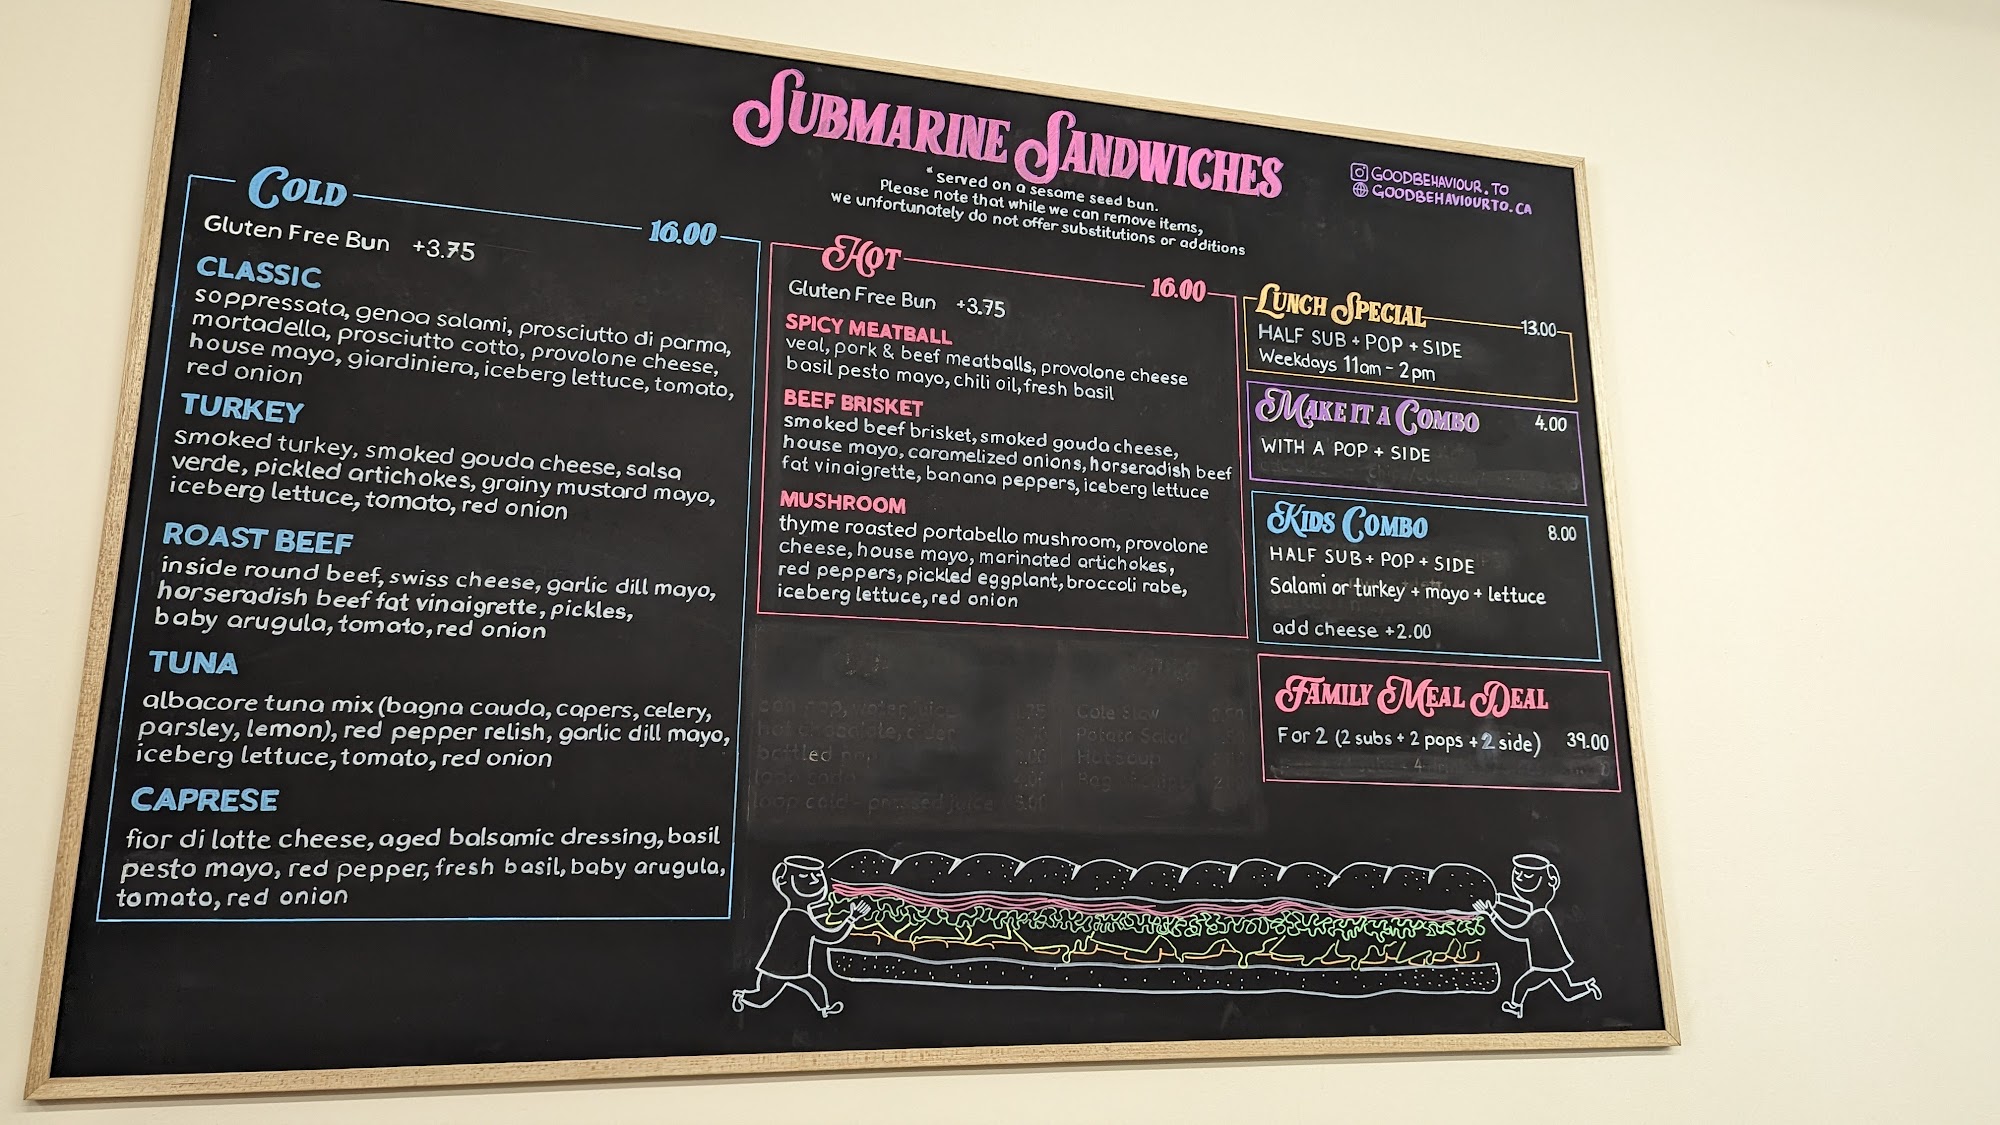 SUBMARINE SANDWICHES
"Served on a sesame seed bun.
Please note that while we can remove items,
we unfortunately do not offer substitutions or additions
GOODBEHAVIOUR.TO
GOODBEHAVIOURTO.CA
COLD 16.00
Gluten Free Bun +3.75
CLASSIC
soppressata, genoa salami, prosciutto di parma,
mortadella, prosciutto cotto, provolone cheese,
house mayo, giardiniera, iceberg lettuce, tomato,
red onion
TURKEY
smoked turkey, smoked gouda cheese, salsa
verde, pickled artichokes, grainy mustard mayo,
iceberg lettuce, tomato, red onion
ROAST BEEF
inside round beef, swiss cheese, garlic dill mayo,
horseradish beef fat vinaigrette, pickles,
baby arugula, tomato, red onion
TUNA
albacore tuna mix (bagna cauda, capers, celery,
parsley, lemon), red pepper relish, garlic dill mayo,
iceberg lettuce, tomato, red onion
CAPRESE
fior di latte cheese, aged balsamic dressing, basil
pesto mayo, red pepper, fresh basil, baby arugula,
tomato, red onion
HOT 16.00
Gluten Free Bun +3.75
SPICY MEATBALL
veal, pork & beef meatballs, provolone cheese
basil pesto mayo, chili oil, fresh basil
BEEF BRISKET
smoked beef brisket, smoked gouda cheese,
house mayo, caramelized onions, horseradish beef
fat vinaigrette, banana peppers, iceberg lettuce
MUSHROOM
thyme roasted portabello mushroom, provolone
cheese, house mayo, marinated artichokes,
red peppers, pickled eggplant, broccoli rabe,
iceberg lettuce, red onion
Cole Slaw
Potato Salad
bottled
loop cold-pressed juice
LUNCH SPECIAL 13.00
HALF SUB + POP + SIDE
Weekdays 11am - 2pm
MAKE IT A COMBO 4.00
WITH A POP + SIDE
KIDS COMBO 8.00
HALF SUB + POP + SIDE
Salami or turkey + mayo + lettuce
add cheese +2.00
FAMILY MEAL DEAL
For 2 (2 subs + 2 pops + 2 side) 39.00